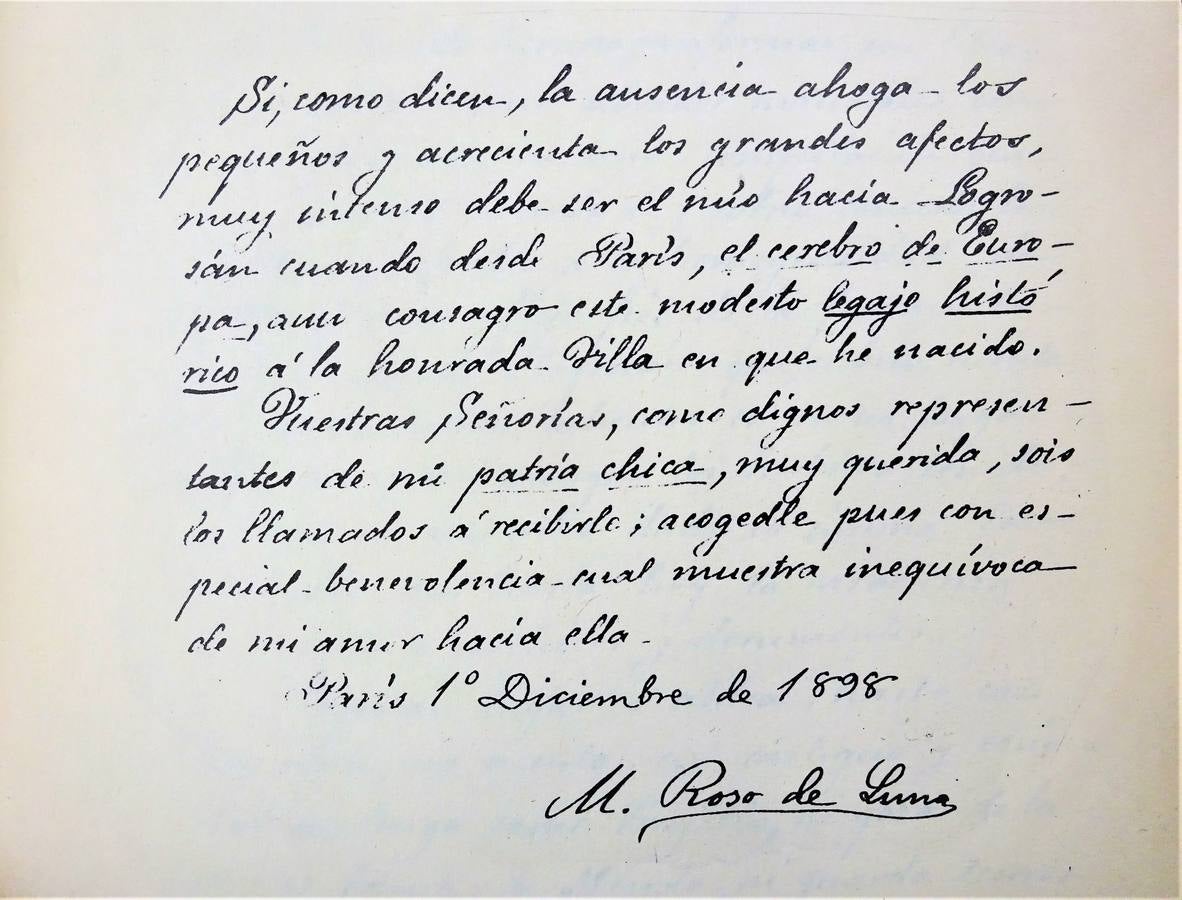 Si, como dicen, la ausencia ahoga los
pequeños y acrecienta los grandes afectos,
muy intenso debe ser el mío hacia Logro-
sán cuando desde París, el cerebro de Euro-
pa, aun consagro este modesto legajo histó
rico á la honrada Villa en que he nacido.
Vuestras Señorías, como dignos represen-
tantes de mi patria chica, muy querida, sois
los llamados á recibirle; acogedle pues con es-
pecial benevolencia cual muestra inequívoca
de mi amor hacia ella.
París 1º Diciembre de 1898
M. Roso de Luna